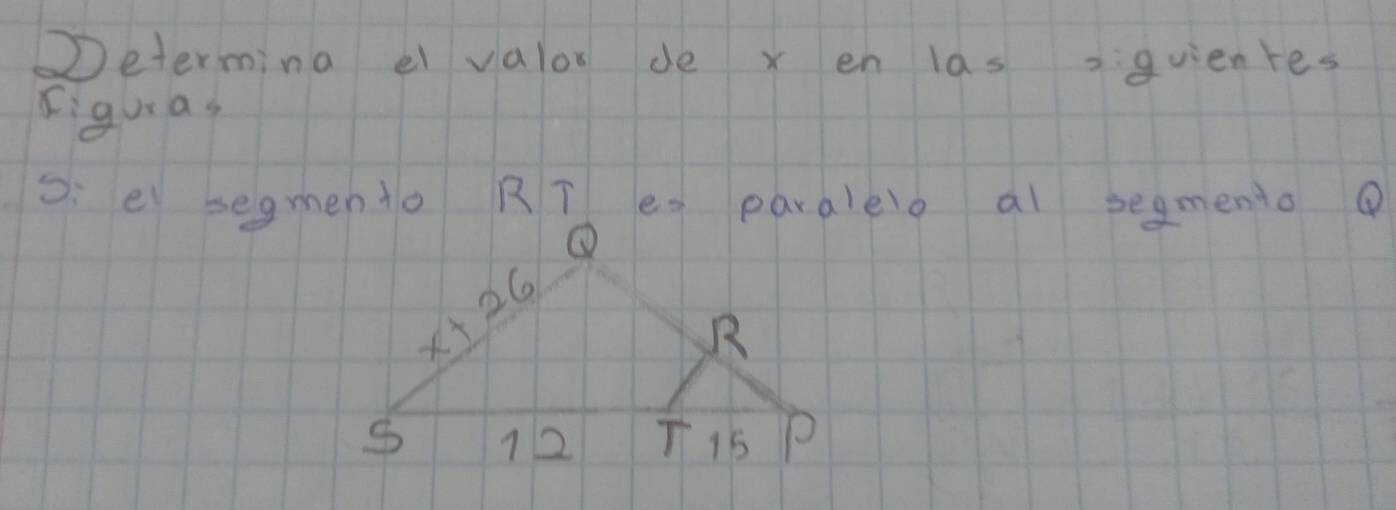 Determina el valor de x en las siguientes
Figuras
Si el segmento RT es paralelo al segmento Q
Q
x+26
R
S 12 T 15 P